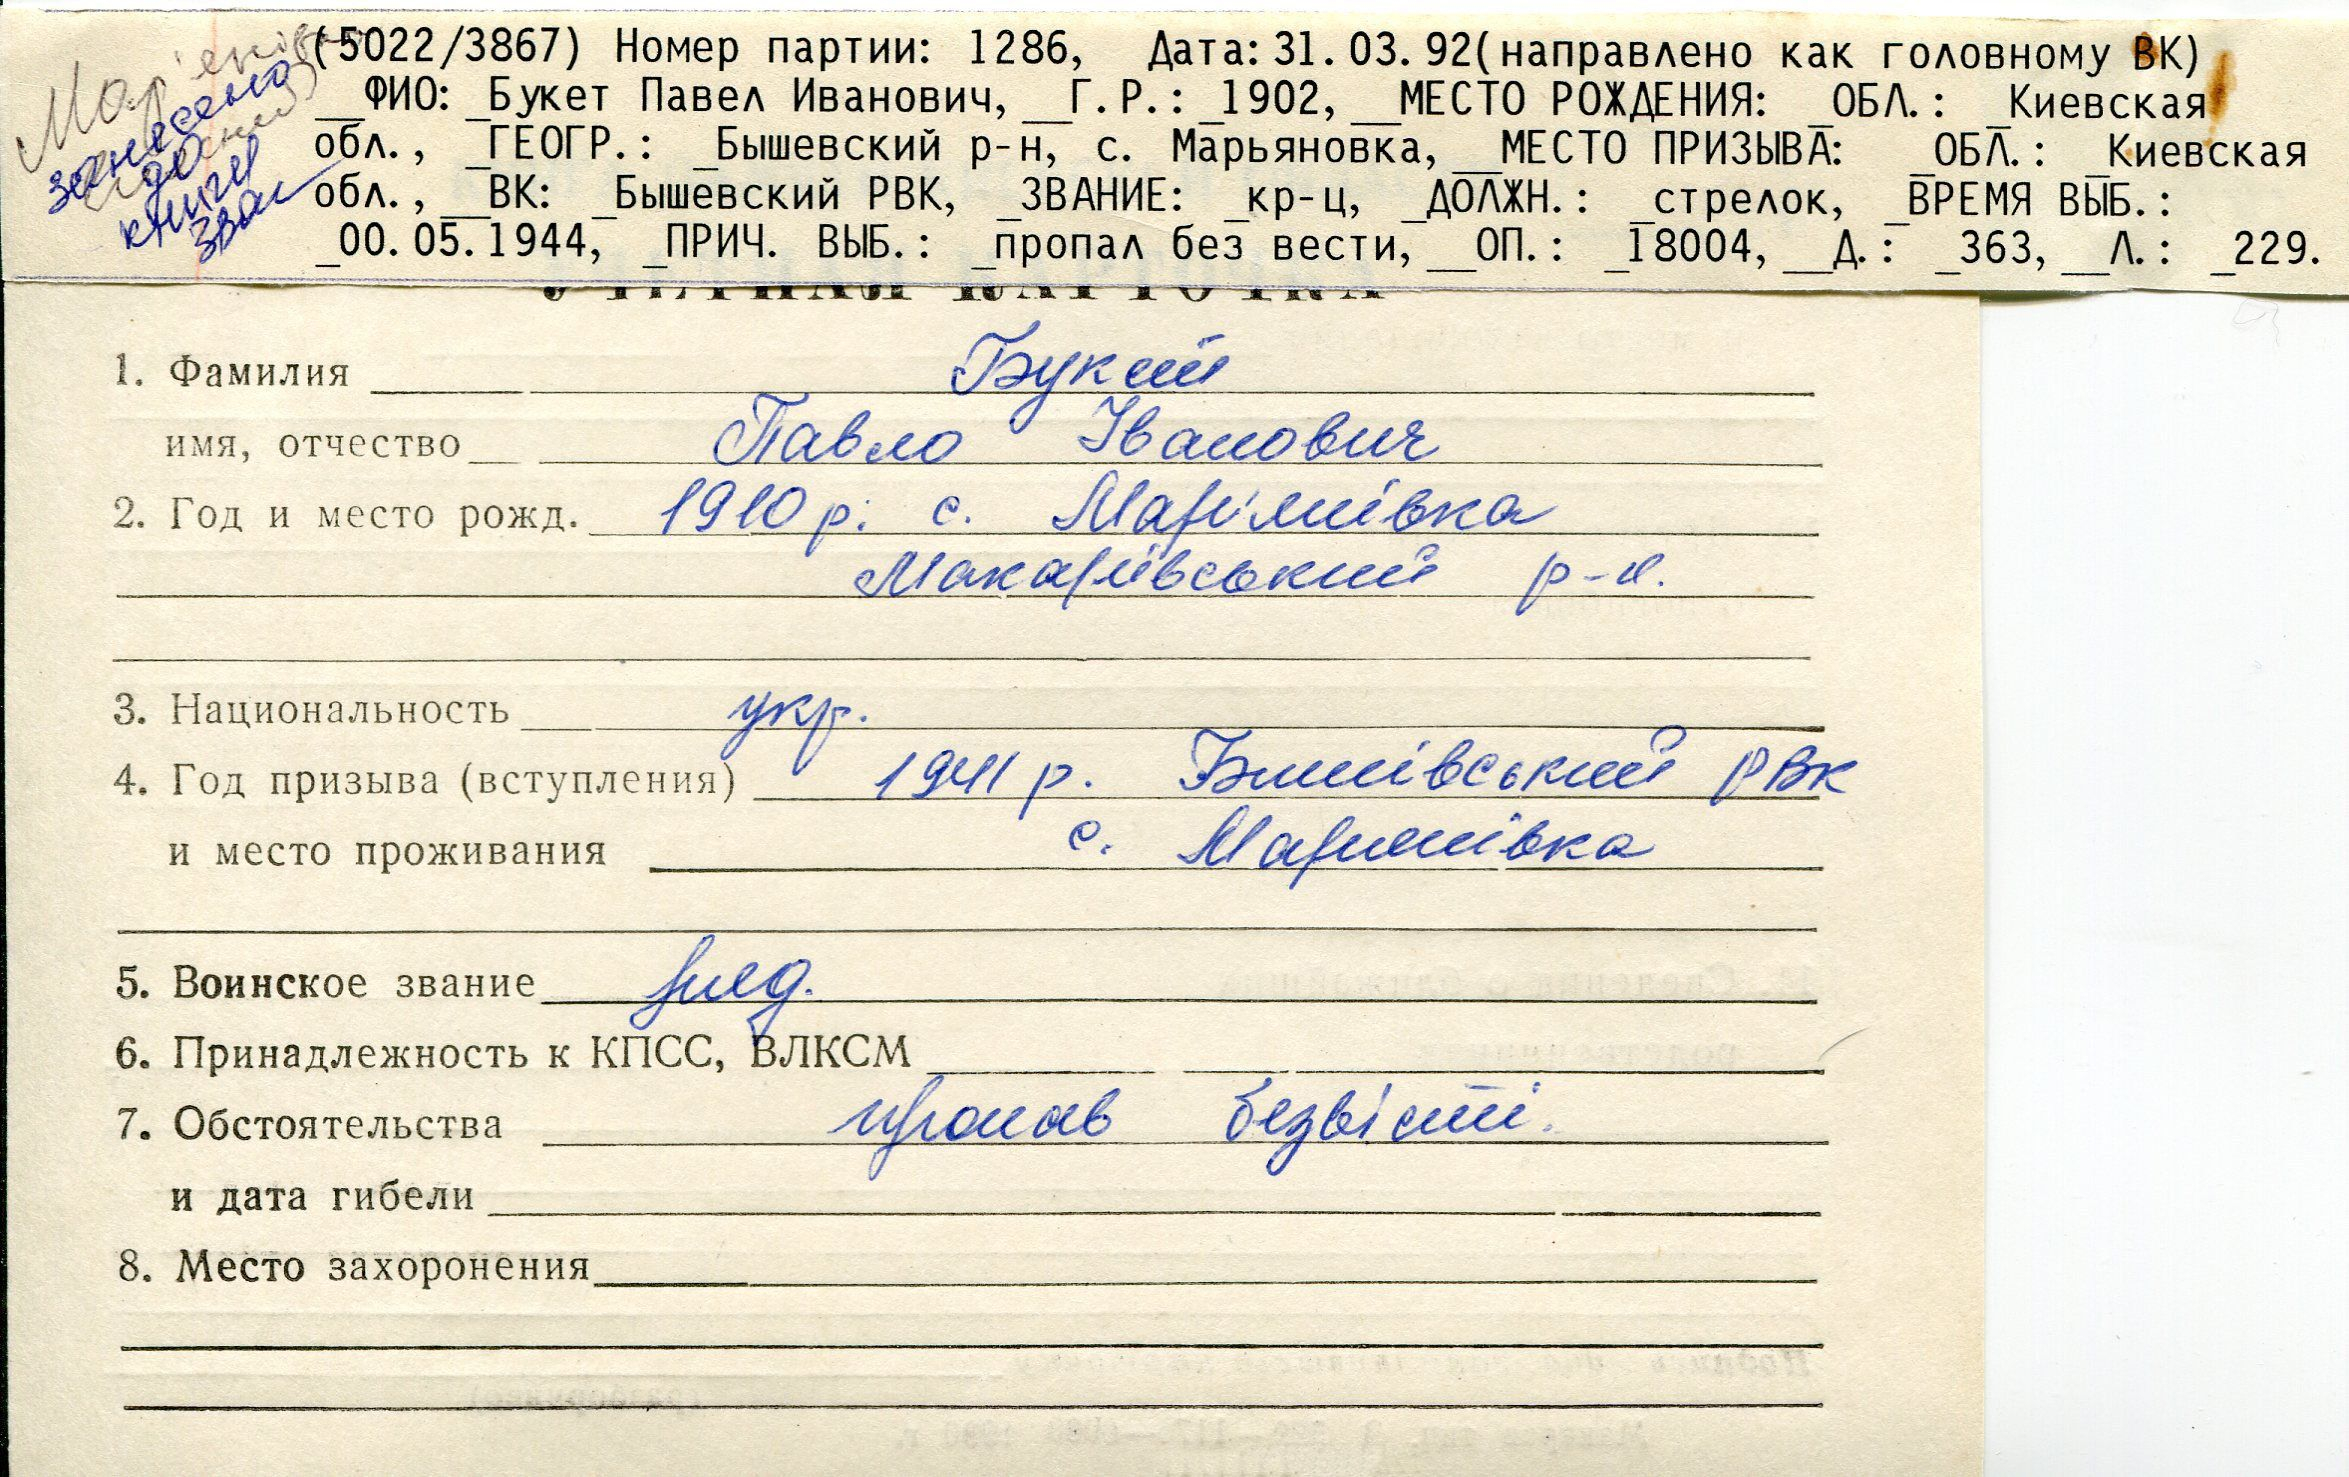 (5022/3867) Номер партии: 1286, Дата: 31.03.92(направлено как головному ВК)
__ФИО: _Букет Павел Иванович, __Г.Р.: _1902, __МЕСТО РОЖДЕНИЯ: _ОБЛ.: _Киевская
обл., _ГЕОГР.: _Бышевский р-н, с. Марьяновка, __МЕСТО ПРИЗЫВА: _ОБЛ.: _Киевская
обл., __ВК: _Бышевский РВК, _ЗВАНИЕ: _кр-ц, _ДОЛЖН.: _стрелок, _ВРЕМЯ ВЫБ.:
_00.05.1944, _ПРИЧ. ВЫБ.: _пропал без вести, __ОП.: _18004, __Д.: _363, __Л.: _229.
занесено
до
книги
УЧЕТНАЯ КАРТОЧКА
1. Фамилия Букет
имя, отчество Павло Іванович
2. Год и место рожд. 1910 р. с. Мар'янівка
Макарівський р-н.
3. Национальность укр.
4. Год призыва (вступления) 1941 р. Бишівський РВК
и место проживания с. Мар'янівка
5. Воинское звание ряд.
6. Принадлежность к КПСС, ВЛКСМ
7. Обстоятельства пропав безвісті.
и дата гибели
8. Место захоронения